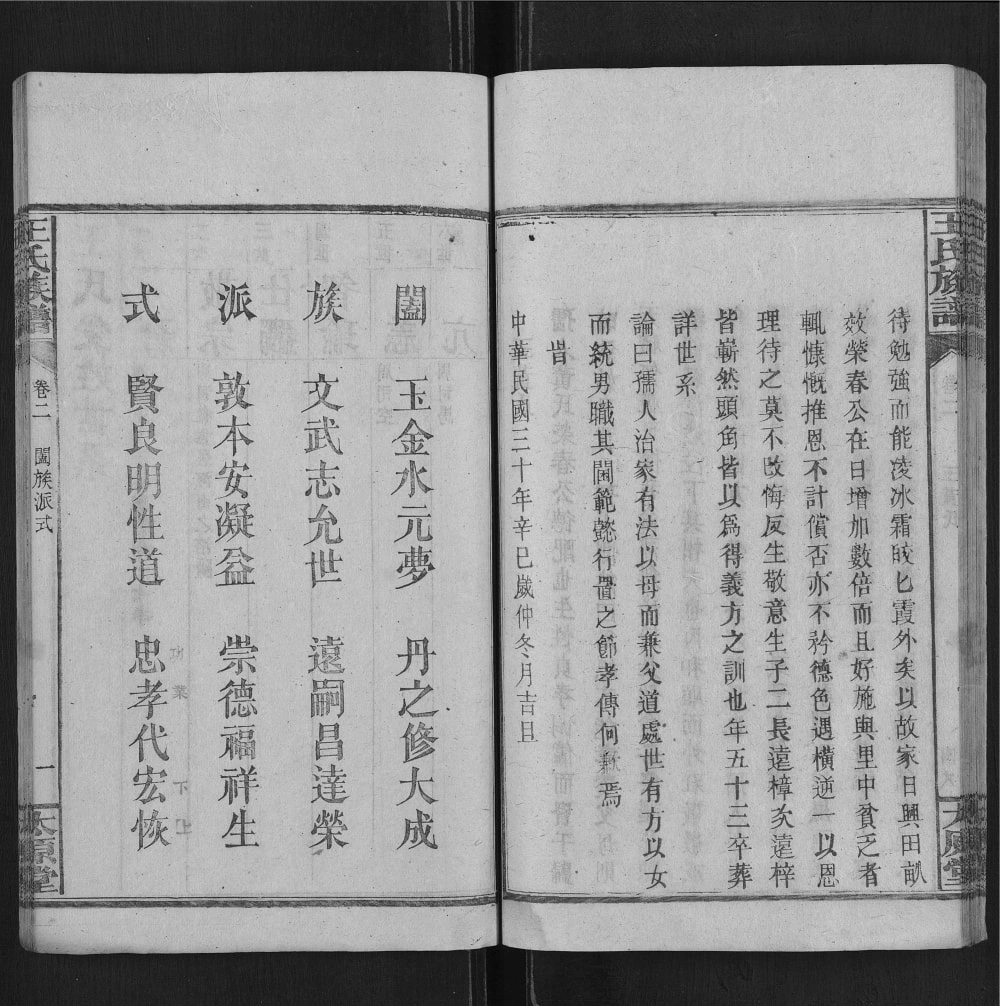 王氏族譜
待勉強而能凌冰霜皎匕霞外矣以故家日興田畝
效榮春公在日增加數倍而且好施與里中貧乏者
輒慷慨推恩不計償否亦不衿德色遇橫逆一以恩
理待之莫不改悔反生敬意生子二長遠樟次遠梓
皆嶄然頭角皆以爲得義方之訓也年五十三卒葬
詳世系
論曰孺人治家有法以母而兼父道處世有方以女
而統男職其閫範懿行畳之節孝傳何歉焉
旹
中華民國三十年辛巳歲仲冬月吉旦
太原堂
闔 玉金水元夢 丹之修大成
族 文武志允世 遠嗣昌達榮
派 敦本安凝益 崇德福祥生
式 賢良明性道 忠孝代宏恢
王氏族譜 卷二 闔族派式 一 太原堂